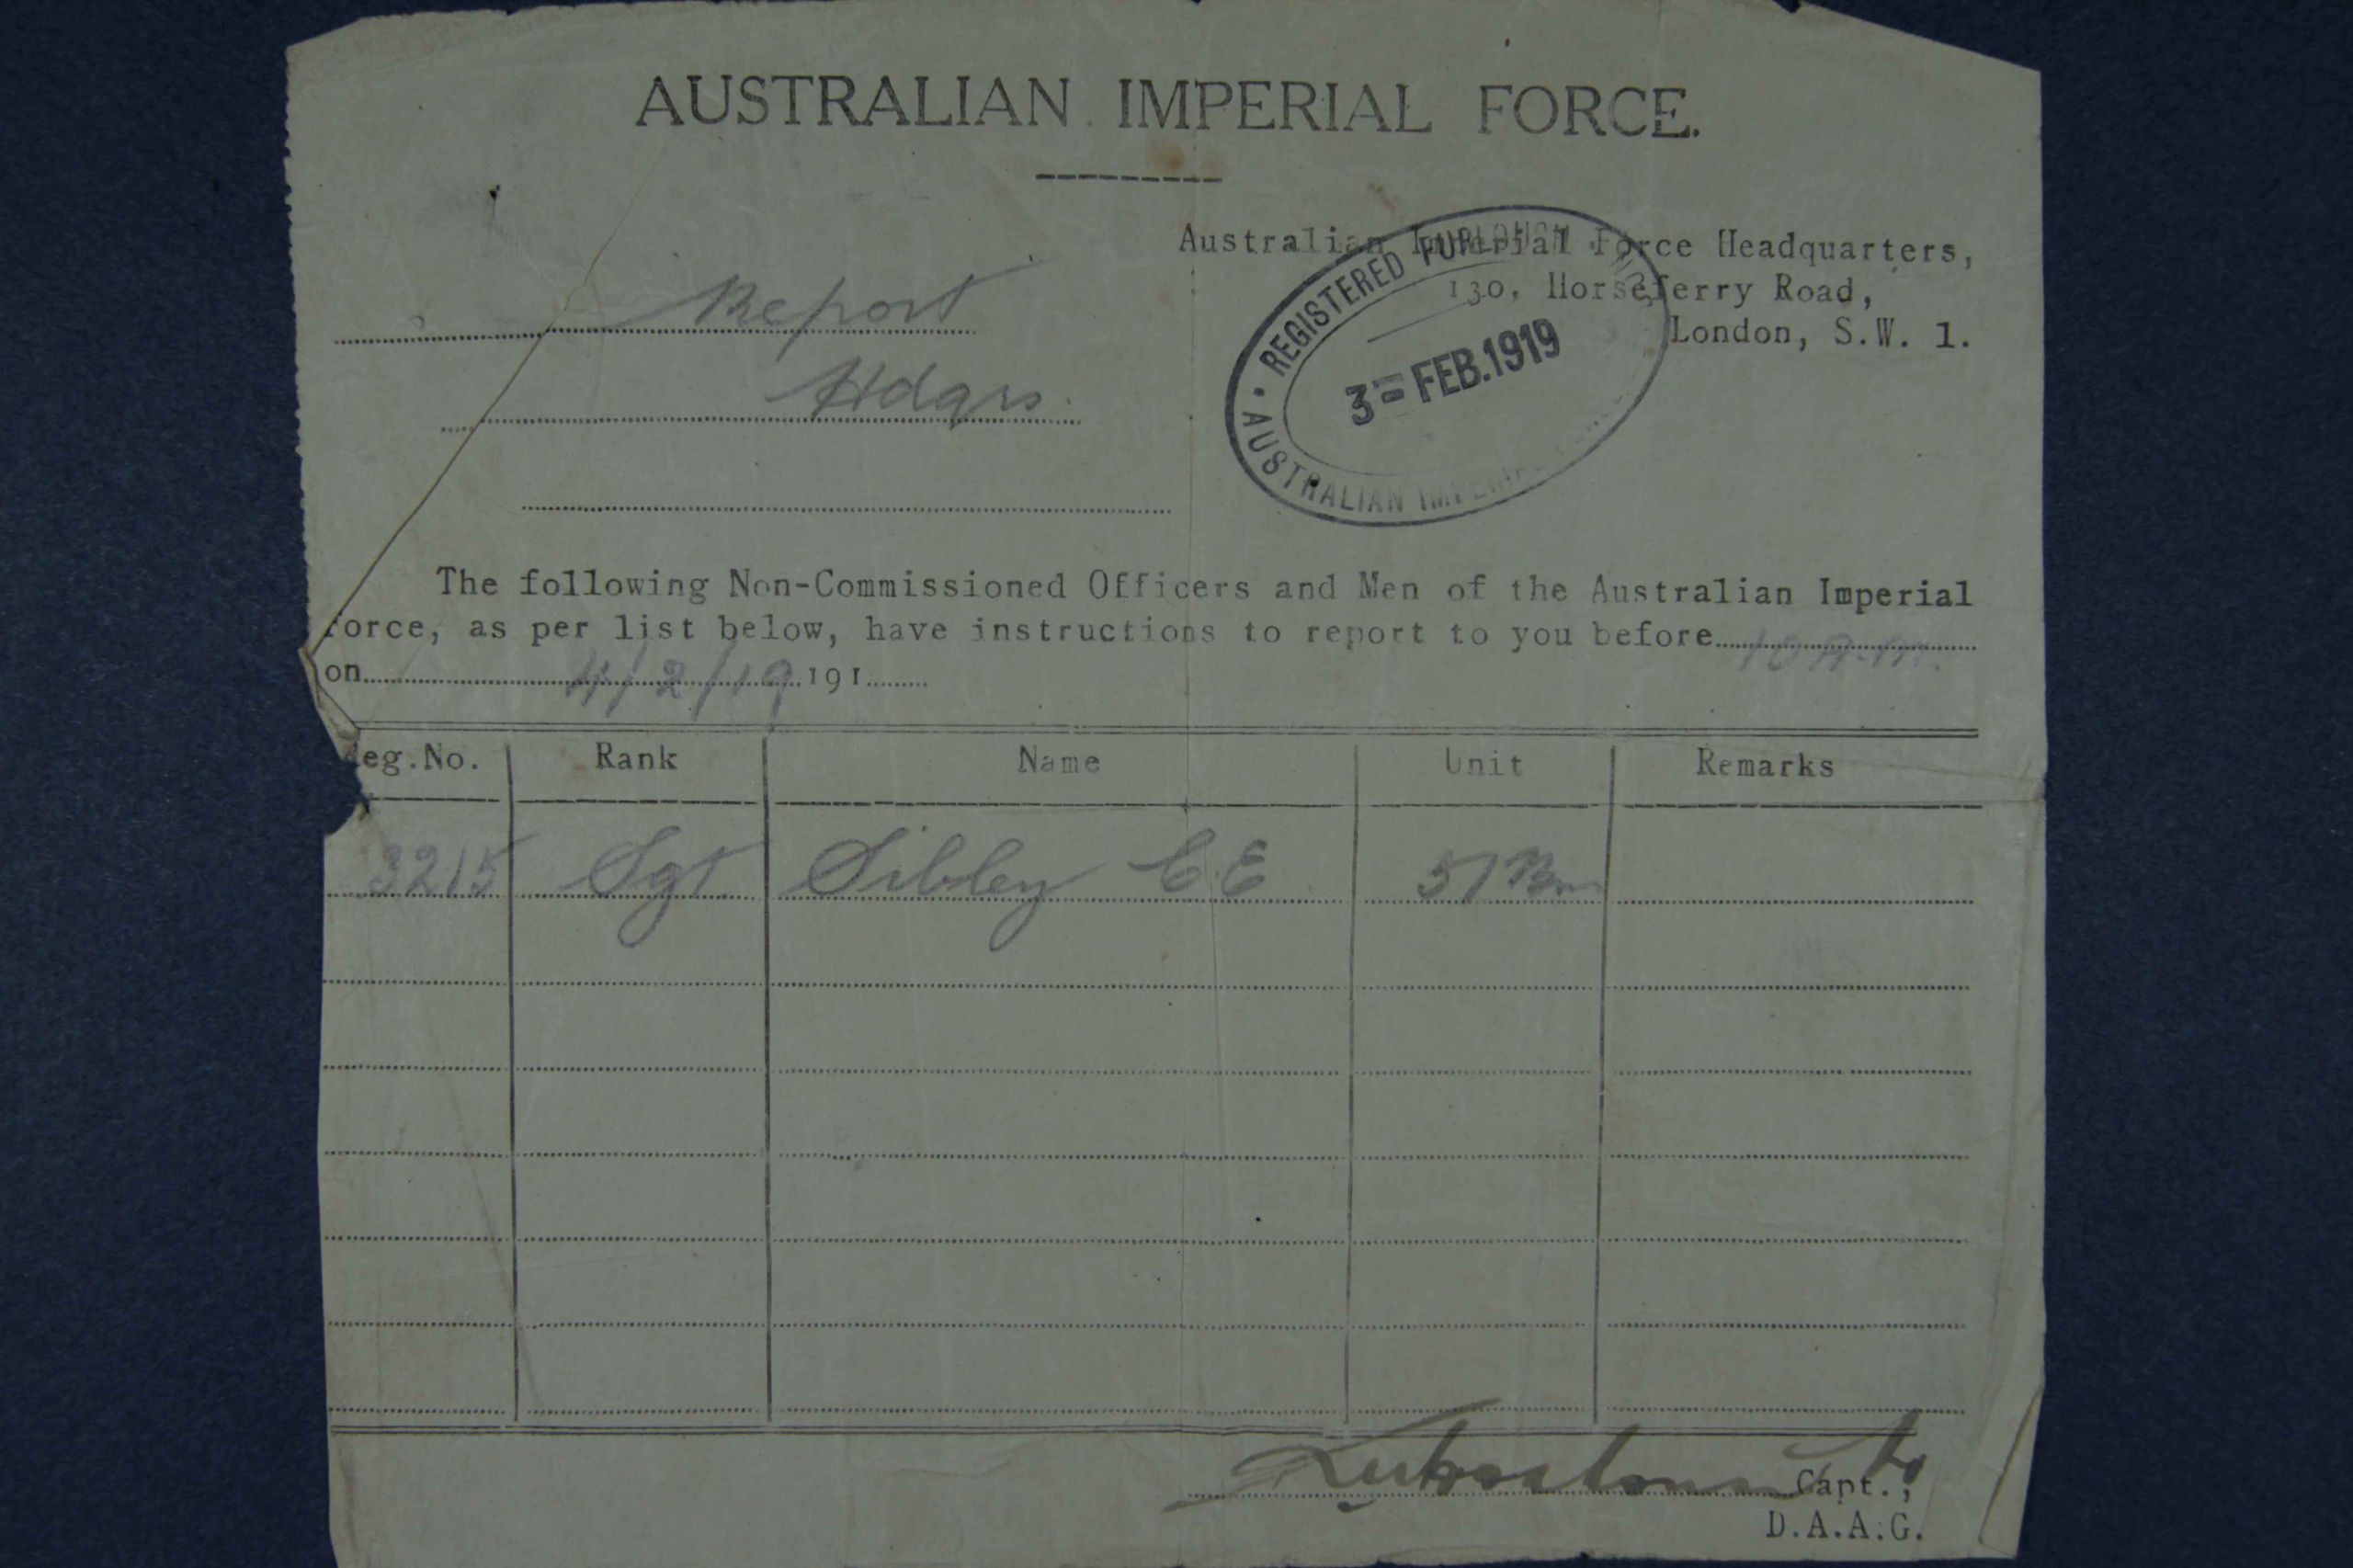 AUSTRALIAN IMPERIAL FORCE.
Australian Imperial Force Headquarters,
130, Horseferry Road,
London, S.W. 1.
REGISTERED FURLOUGH
3 = FEB.1919
AUSTRALIAN IMPERIAL
Report
Hdqrs.
The following Non-Commissioned Officers and Men of the Australian Imperial
Force, as per list below, have instructions to report to you before 10 A.M.
on 4/2/19 191
Reg.No. Rank Name Unit Remarks
3215 Sgt Sibley C.E 51 Bn
Capt.,
D.A.A.G.